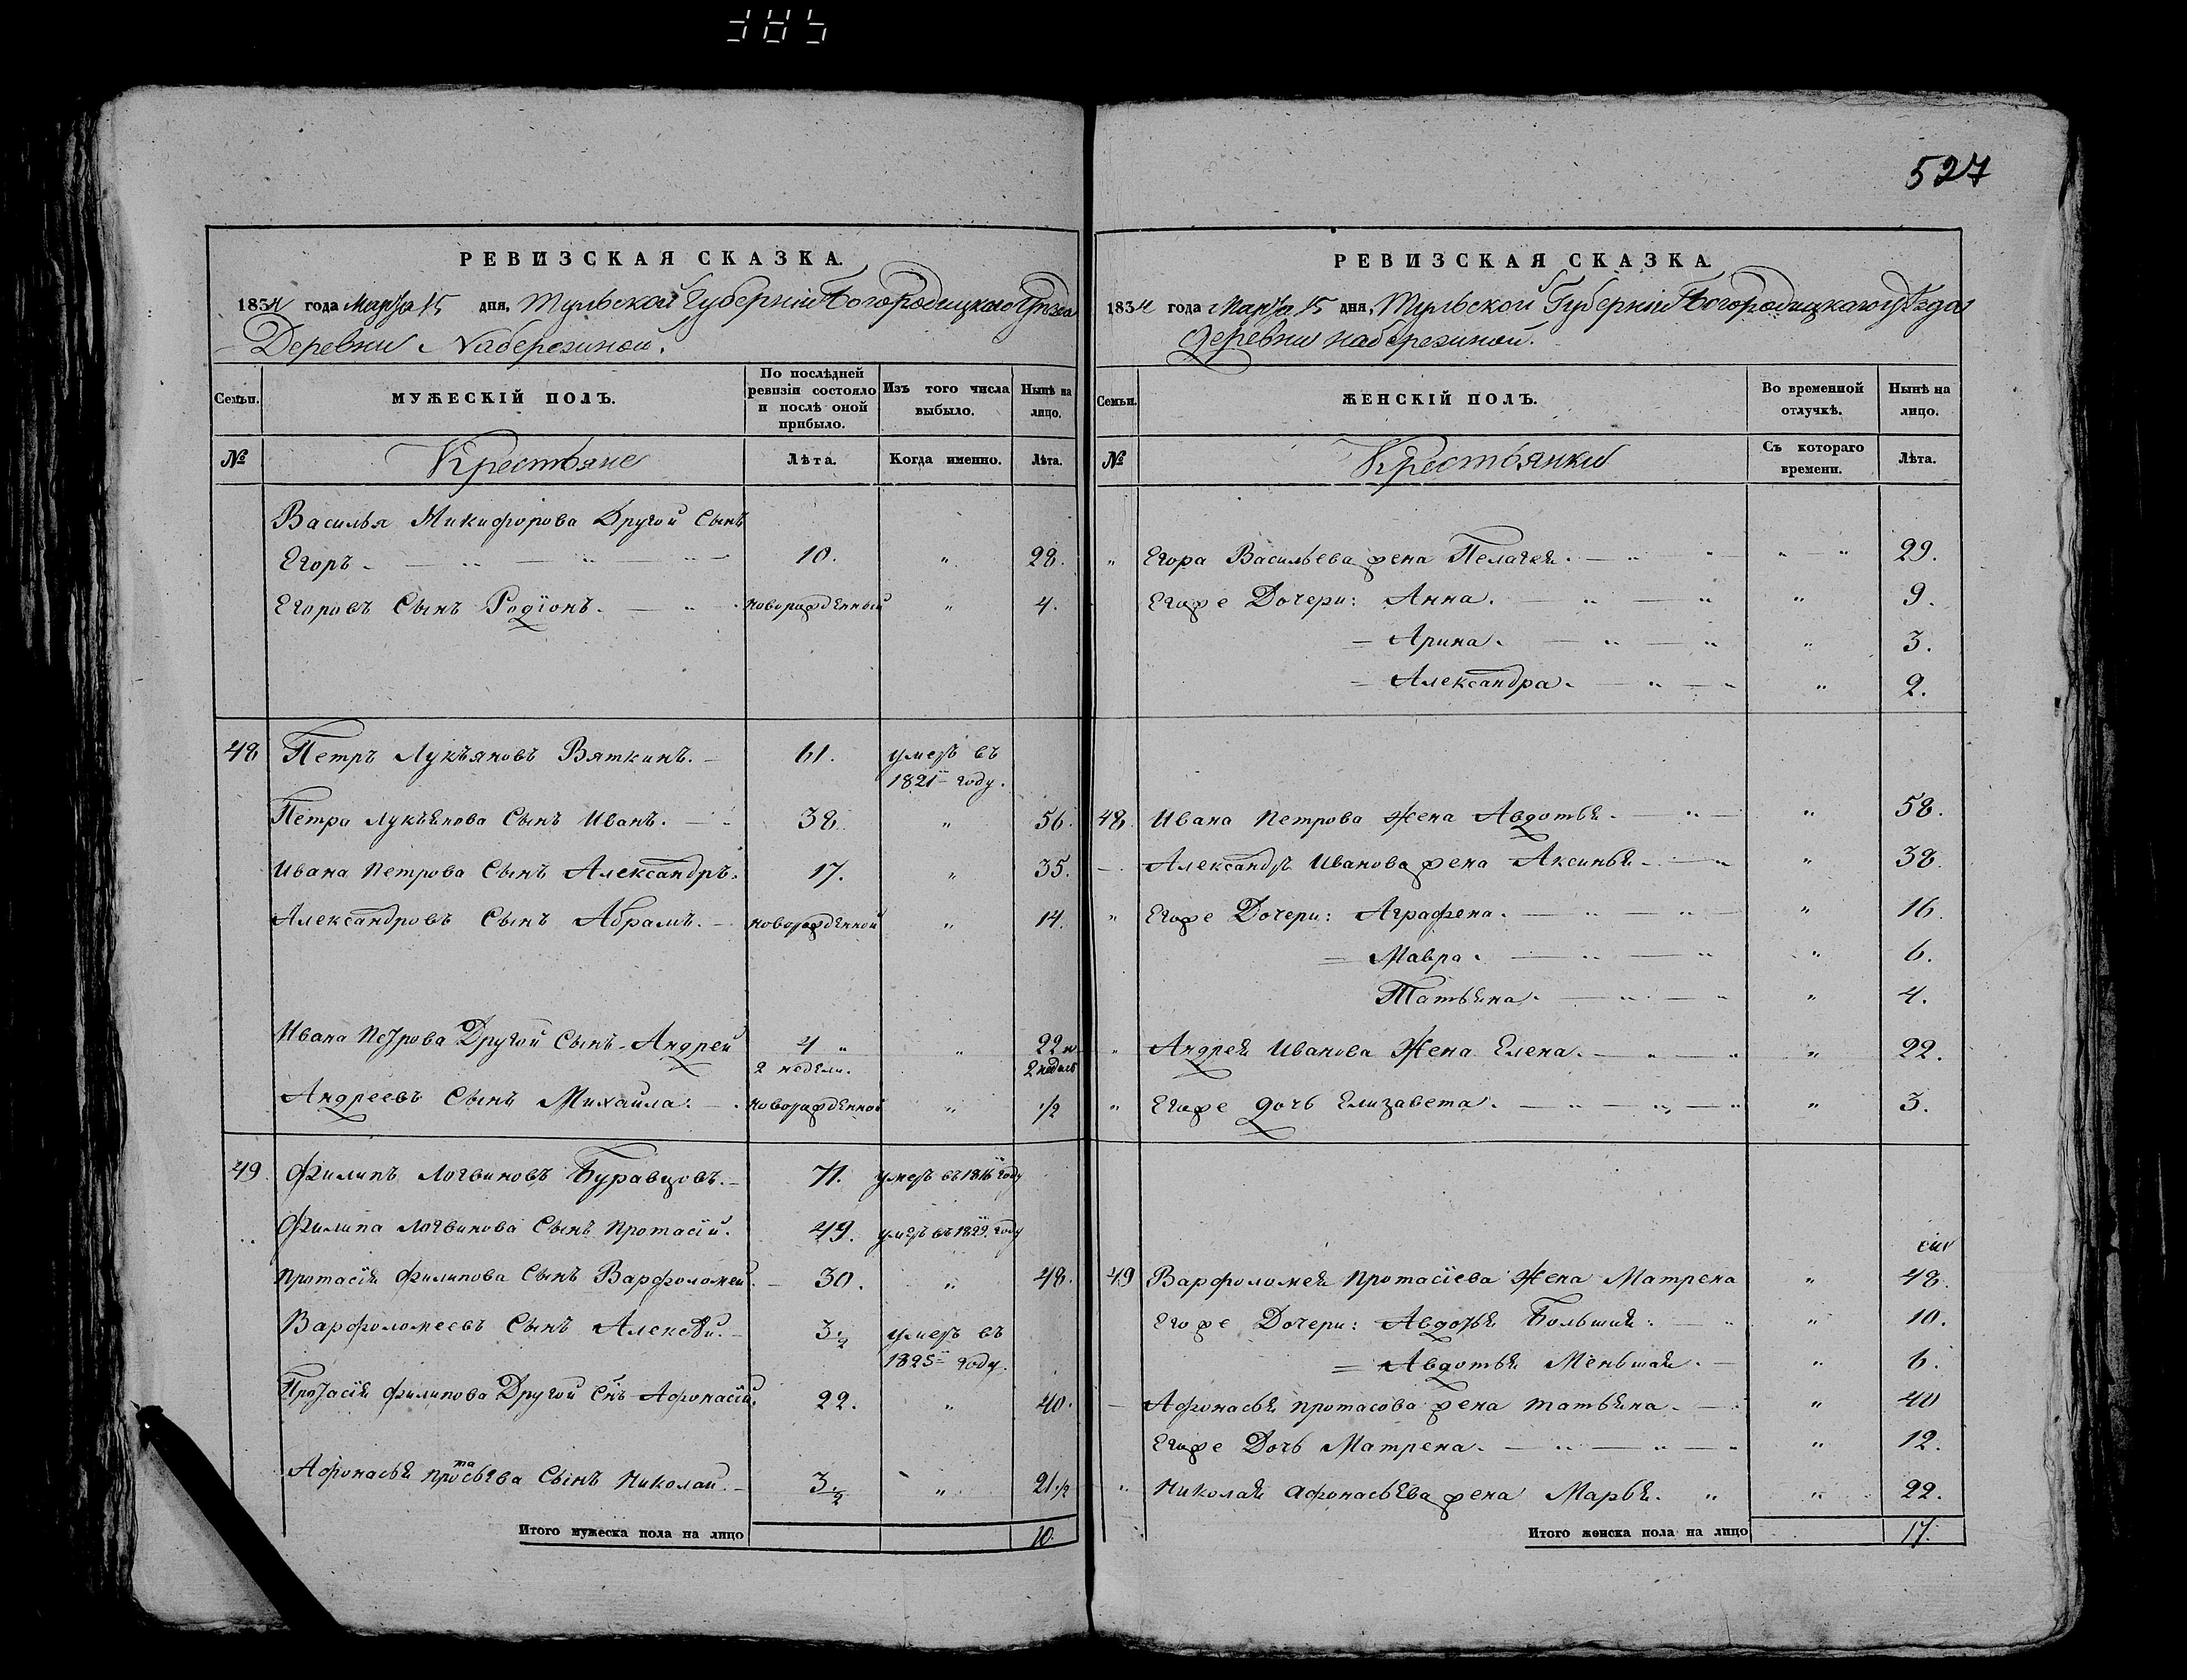 385
527
РЕВИЗСКАЯ СКАЗКА.
1834 года Марта 15 дня, Тульской Губерніи Богородицкаго Уѣзда
Деревни Набережиной.
Семьи. МУЖЕСКІЙ ПОЛЪ. По послѣдней ревизіи состояло и послѣ оной прибыло. Изъ того числа выбыло. Нынѣ на лицо.
№ Крестьяне Лѣта. Когда именно. Лѣта.
Василья Микифорова Другой Сынъ
Егоръ 10. " 28.
Егоровъ Сынъ Родіонъ. новорожденный " 4.
48 Петръ Лукъяновъ Вяткинъ. 61. умеръ въ
1821 году.
Петра Лукъянова Сынъ Иванъ. 38 " 56.
Ивана Петрова Сынъ Александръ. 17. " 35.
Александровъ Сынъ Абрамъ. новорожденной " 14.
Ивана Петрова Другой Сынъ Андрей 4 " " 22 и
2 недели. 2 недель
Андреевъ Сынъ Михаила. новорожденной " 1/2
49. Филипъ Логвиновъ Буравцовъ. 71. умеръ въ 1816 году
Филипа Логвинова Сынъ Протасій. 49. умеръ въ 1822 году
Протасія Филипова Сынъ Варфоломей. 30. " 48.
Варфоломеевъ Сынъ Алексѣй. 3 1/2 умеръ въ
1825 году.
Протасія Филипова Другой Снъ Афонасій. 22. " 40.
та
Афонасья Просьева Сынъ Николай. 3 1/2 " 21 1/2
Итого мужеска пола на лицо 10.
РЕВИЗСКАЯ СКАЗКА.
1834 года Марта 15 дня, Тульской Губерніи Богородицкаго Уѣзда
Деревни Набережиной.
Семьи. ЖЕНСКІЙ ПОЛЪ. Во временной отлучкѣ. Нынѣ на лицо.
№ Крестьянки Съ котораго времени. Лѣта.
" Егора Васильева жена Пелагея. " " 29.
Егоже Дочери: Анна. " 9.
= Арина. " 3.
= Александра. " 2.
48 Ивана Петрова Жена Авдотья " 58.
Александръ Иванова жена Аксинья " 38
" Егоже Дочери: Аграфена. " 16.
= Мавра. " 6.
Татьяна. " 4.
" Андрея Иванова Жена Елена. " 22.
" Егоже дочь Елизавета. " 3.
49 Варфоломея Протасіева Жена Матрена " 48.
Егоже Дочери: Авдотья Большия. " 10.
= Авдотья Меньшая. " 6.
Афонасья Протасова жена Татьяна. " 40
Егоже Дочь Матрена. " 12.
" Николая Афонасьева жена Марья. " " 22.
Итого женска пола на лицо 17.